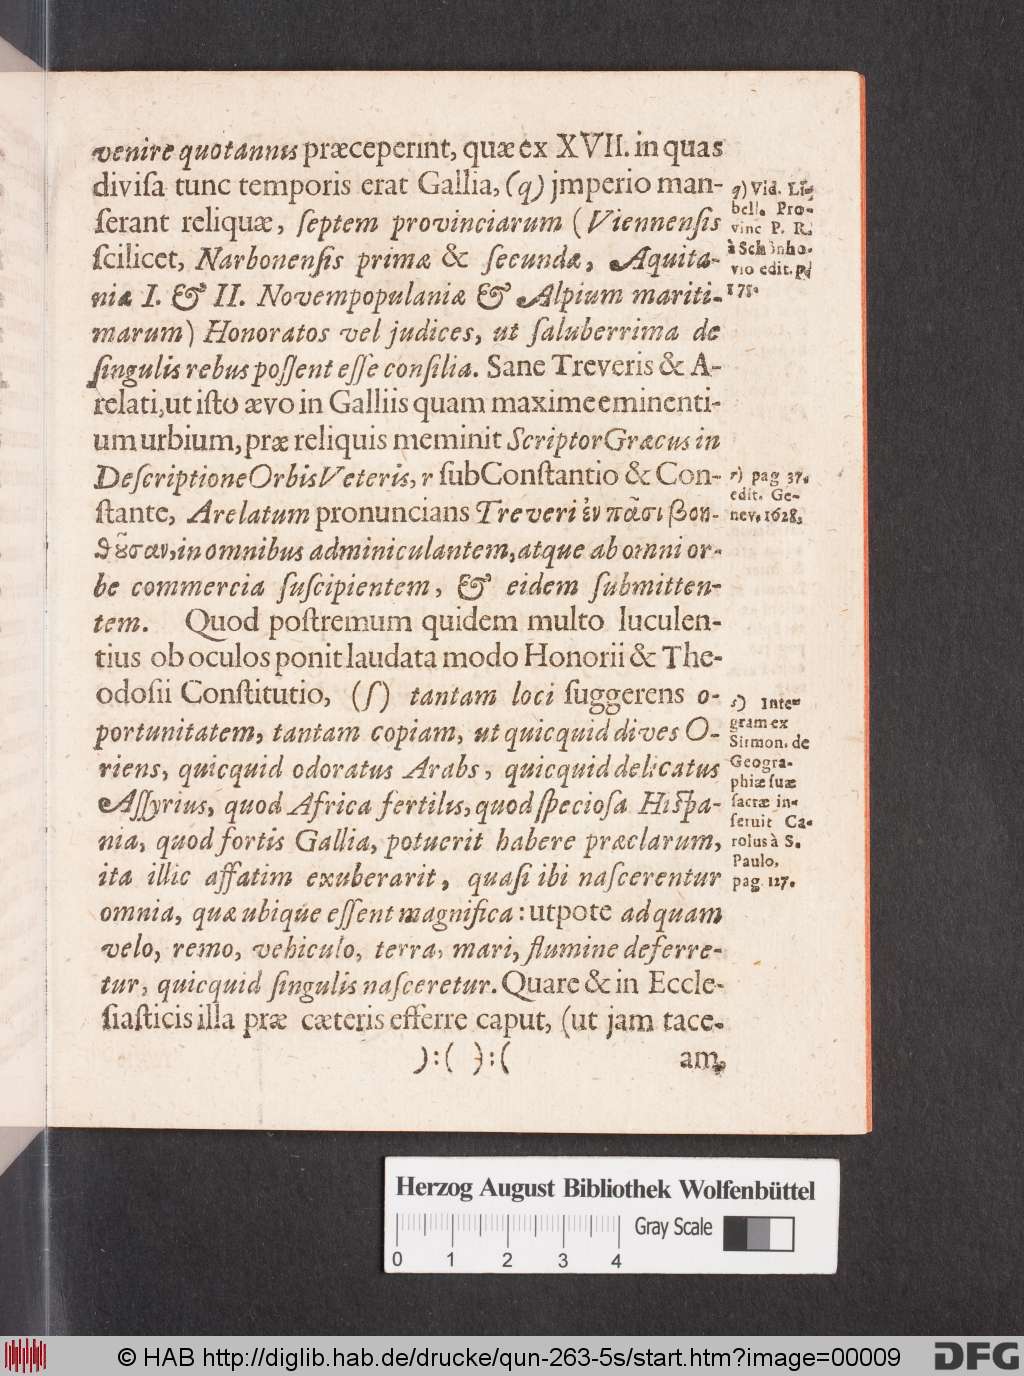 venire quotannis præceperint, quæ ex XVII. in quas
divisa tunc temporis erat Gallia, (q) jmperio man-
serant reliquæ, septem provinciarum (Viennensis
scilicet, Narbonensis primæ & secundæ, Aquita-
niæ I. & II. Novempopulaniæ & Alpium mariti-
marum) Honoratos vel judices, ut saluberrima de
singulis rebus possent esse consilia. Sane Treveris & A-
relati, ut isto ævo in Galliis quam maxime eminenti-
um urbium, præ reliquis meminit Scriptor Græcus in
Descriptione Orbis Veteris, r sub Constantio & Con-
stante, Arelatum pronuncians Treveri ἐν πᾶσι βοη-
θȣ͂σαν, in omnibus adminiculantem, atque ab omni or-
be commercia suscipientem, & eidem submitten-
tem. Quod postremum quidem multo luculen-
tius ob oculos ponit laudata modo Honorii & The-
odosii Constitutio, (ſ) tantam loci suggerens o-
portunitatem, tantam copiam, ut quicquid dives O-
riens, quicquid odoratus Arabs, quicquid delicatus
Assyrius, quod Africa fertilis, quod speciosa Hispa-
nia, quod fortis Gallia, potuerit habere præclarum,
ita illic affatim exuberarit, quasi ibi nascerentur
omnia, quæ ubique essent magnifica: utpote ad quam
velo, remo, vehiculo, terra, mari, flumine deferre-
tur, quicquid singulis nasceretur. Quare & in Eccle-
siasticis illa præ cæteris efferre caput, (ut jam tace-
):( ):(
am,
q) Vid. Li-
bell. Pro-
vinc P. R.
à Schonho-
vio edit. p.
175.
r) pag 37.
edit. Ge-
nev. 1628,
s) Inte-
gram ex
Sirmon. de
Geogra-
phiæ suæ
sacræ in-
seruit Ca-
rolus à S.
Paulo,
pag. 127.
Herzog August Bibliothek Wolfenbüttel
Gray Scale
0 1 2 3 4
© HAB http://diglib.hab.de/drucke/qun-263-5s/start.htm?image=00009
DFG